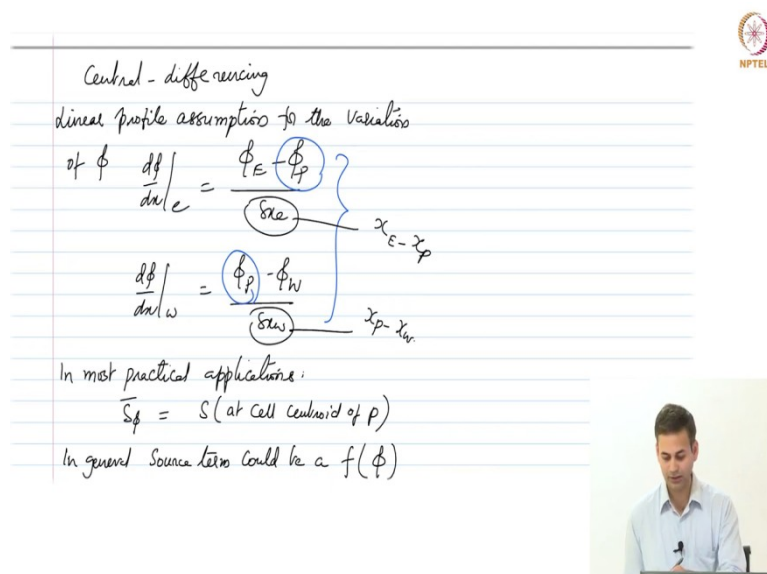 NPTEL
Central-differencing
Linear profile assumption for the variation
of ϕ dϕ/dx|e = (ϕE - ϕP)/δxe
xE - xP
dϕ/dx|w = (ϕP - ϕW)/δxw
xP - xW.
In most practical applications:
S̅ϕ = S(at cell centroid of P)
In general source term could be a f(ϕ)